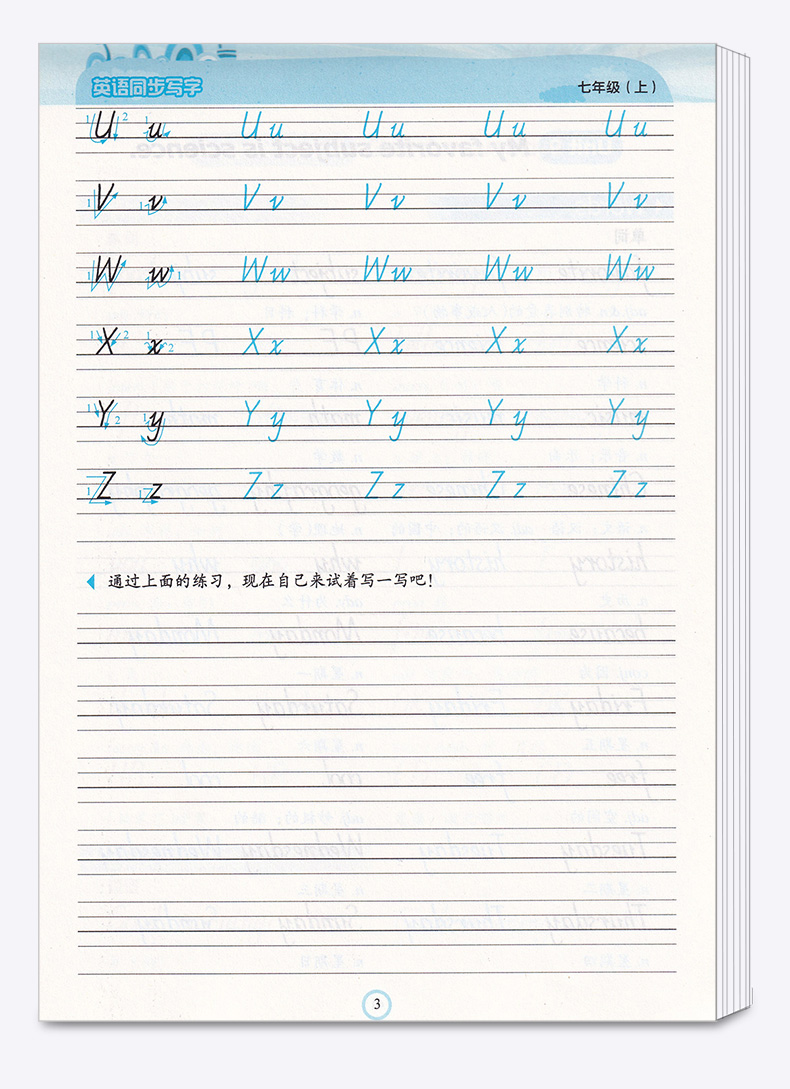 英语同步写字 七年级（上）
1 U 2 1 u Uu Uu Uu Uu
1 V 1 v Vv Vv Vv Vv
1 W w 1 Ww Ww Ww Ww
1 X 2 1 x 2 Xx Xx Xx Xx
1 Y 2 1 y Yy Yy Yy Yy
1 Z 1 z Zz Zz Zz Zz
通过上面的练习，现在自己来试着写一写吧！
3